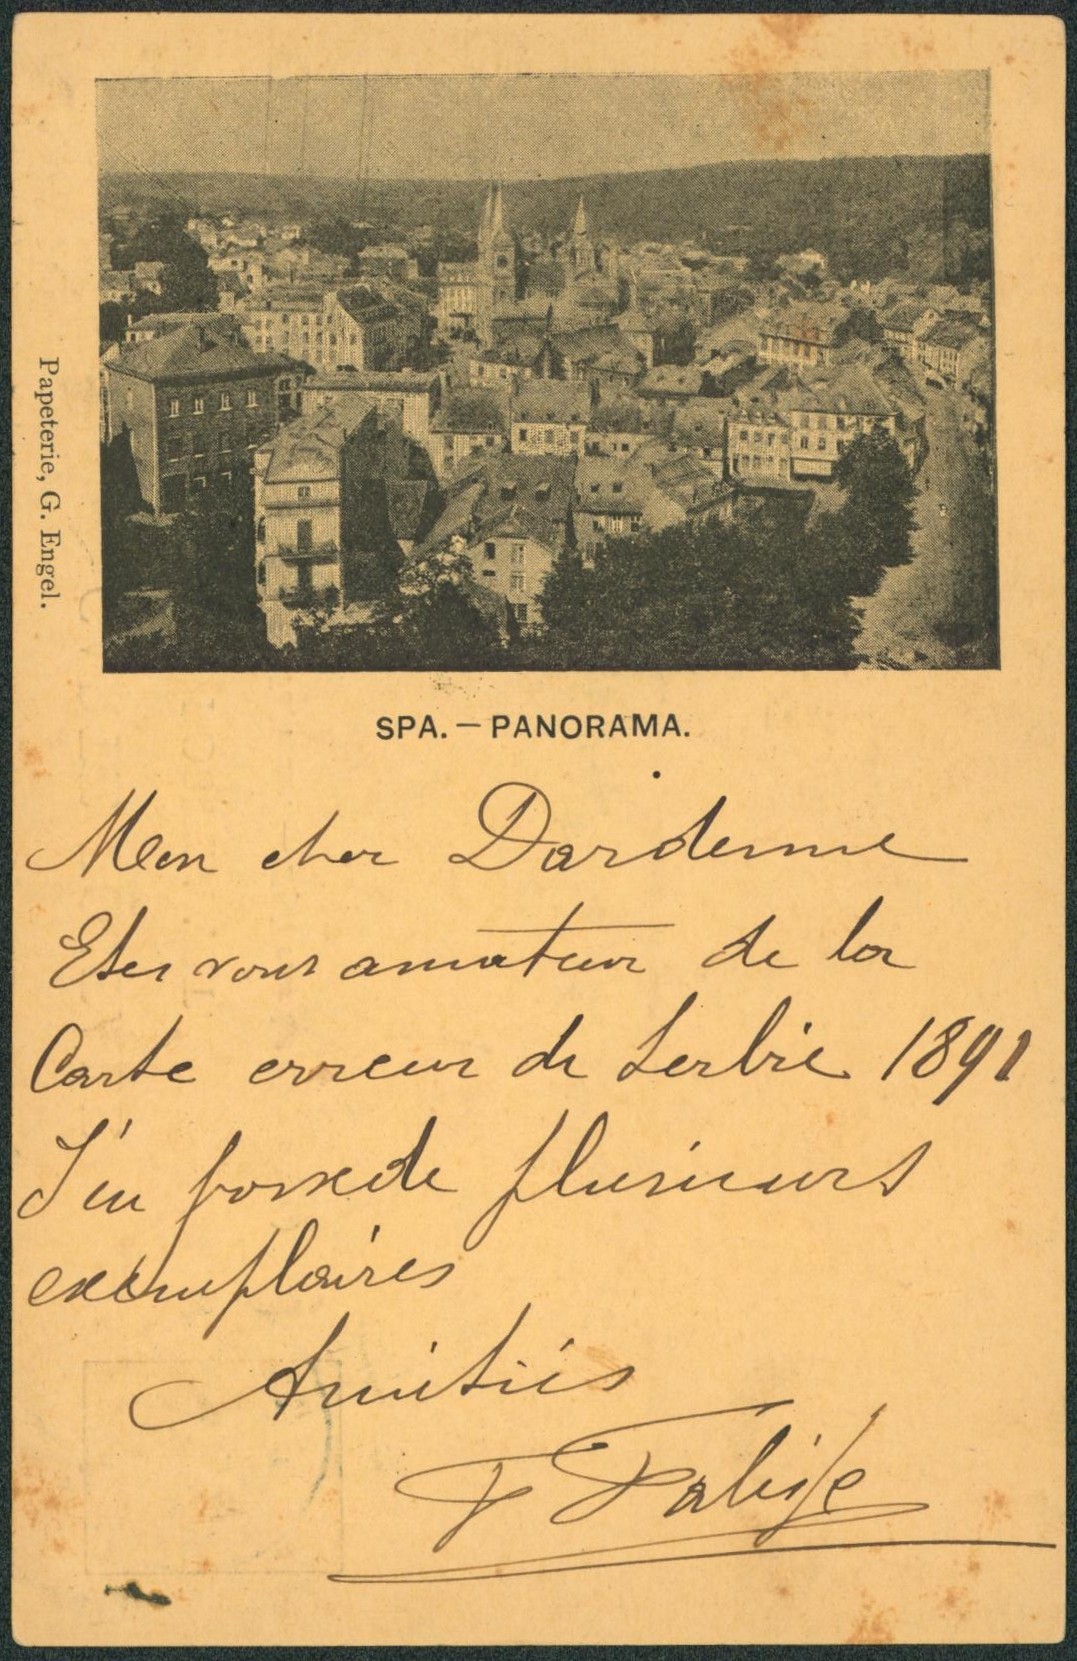 Papeterie, G. Engel.
SPA. — PANORAMA.
Mon cher Dardenne
Etes vous amateur de la
Carte erreur de Serbie 1891
J'en possede plusieurs
exemplaires
Amitiés